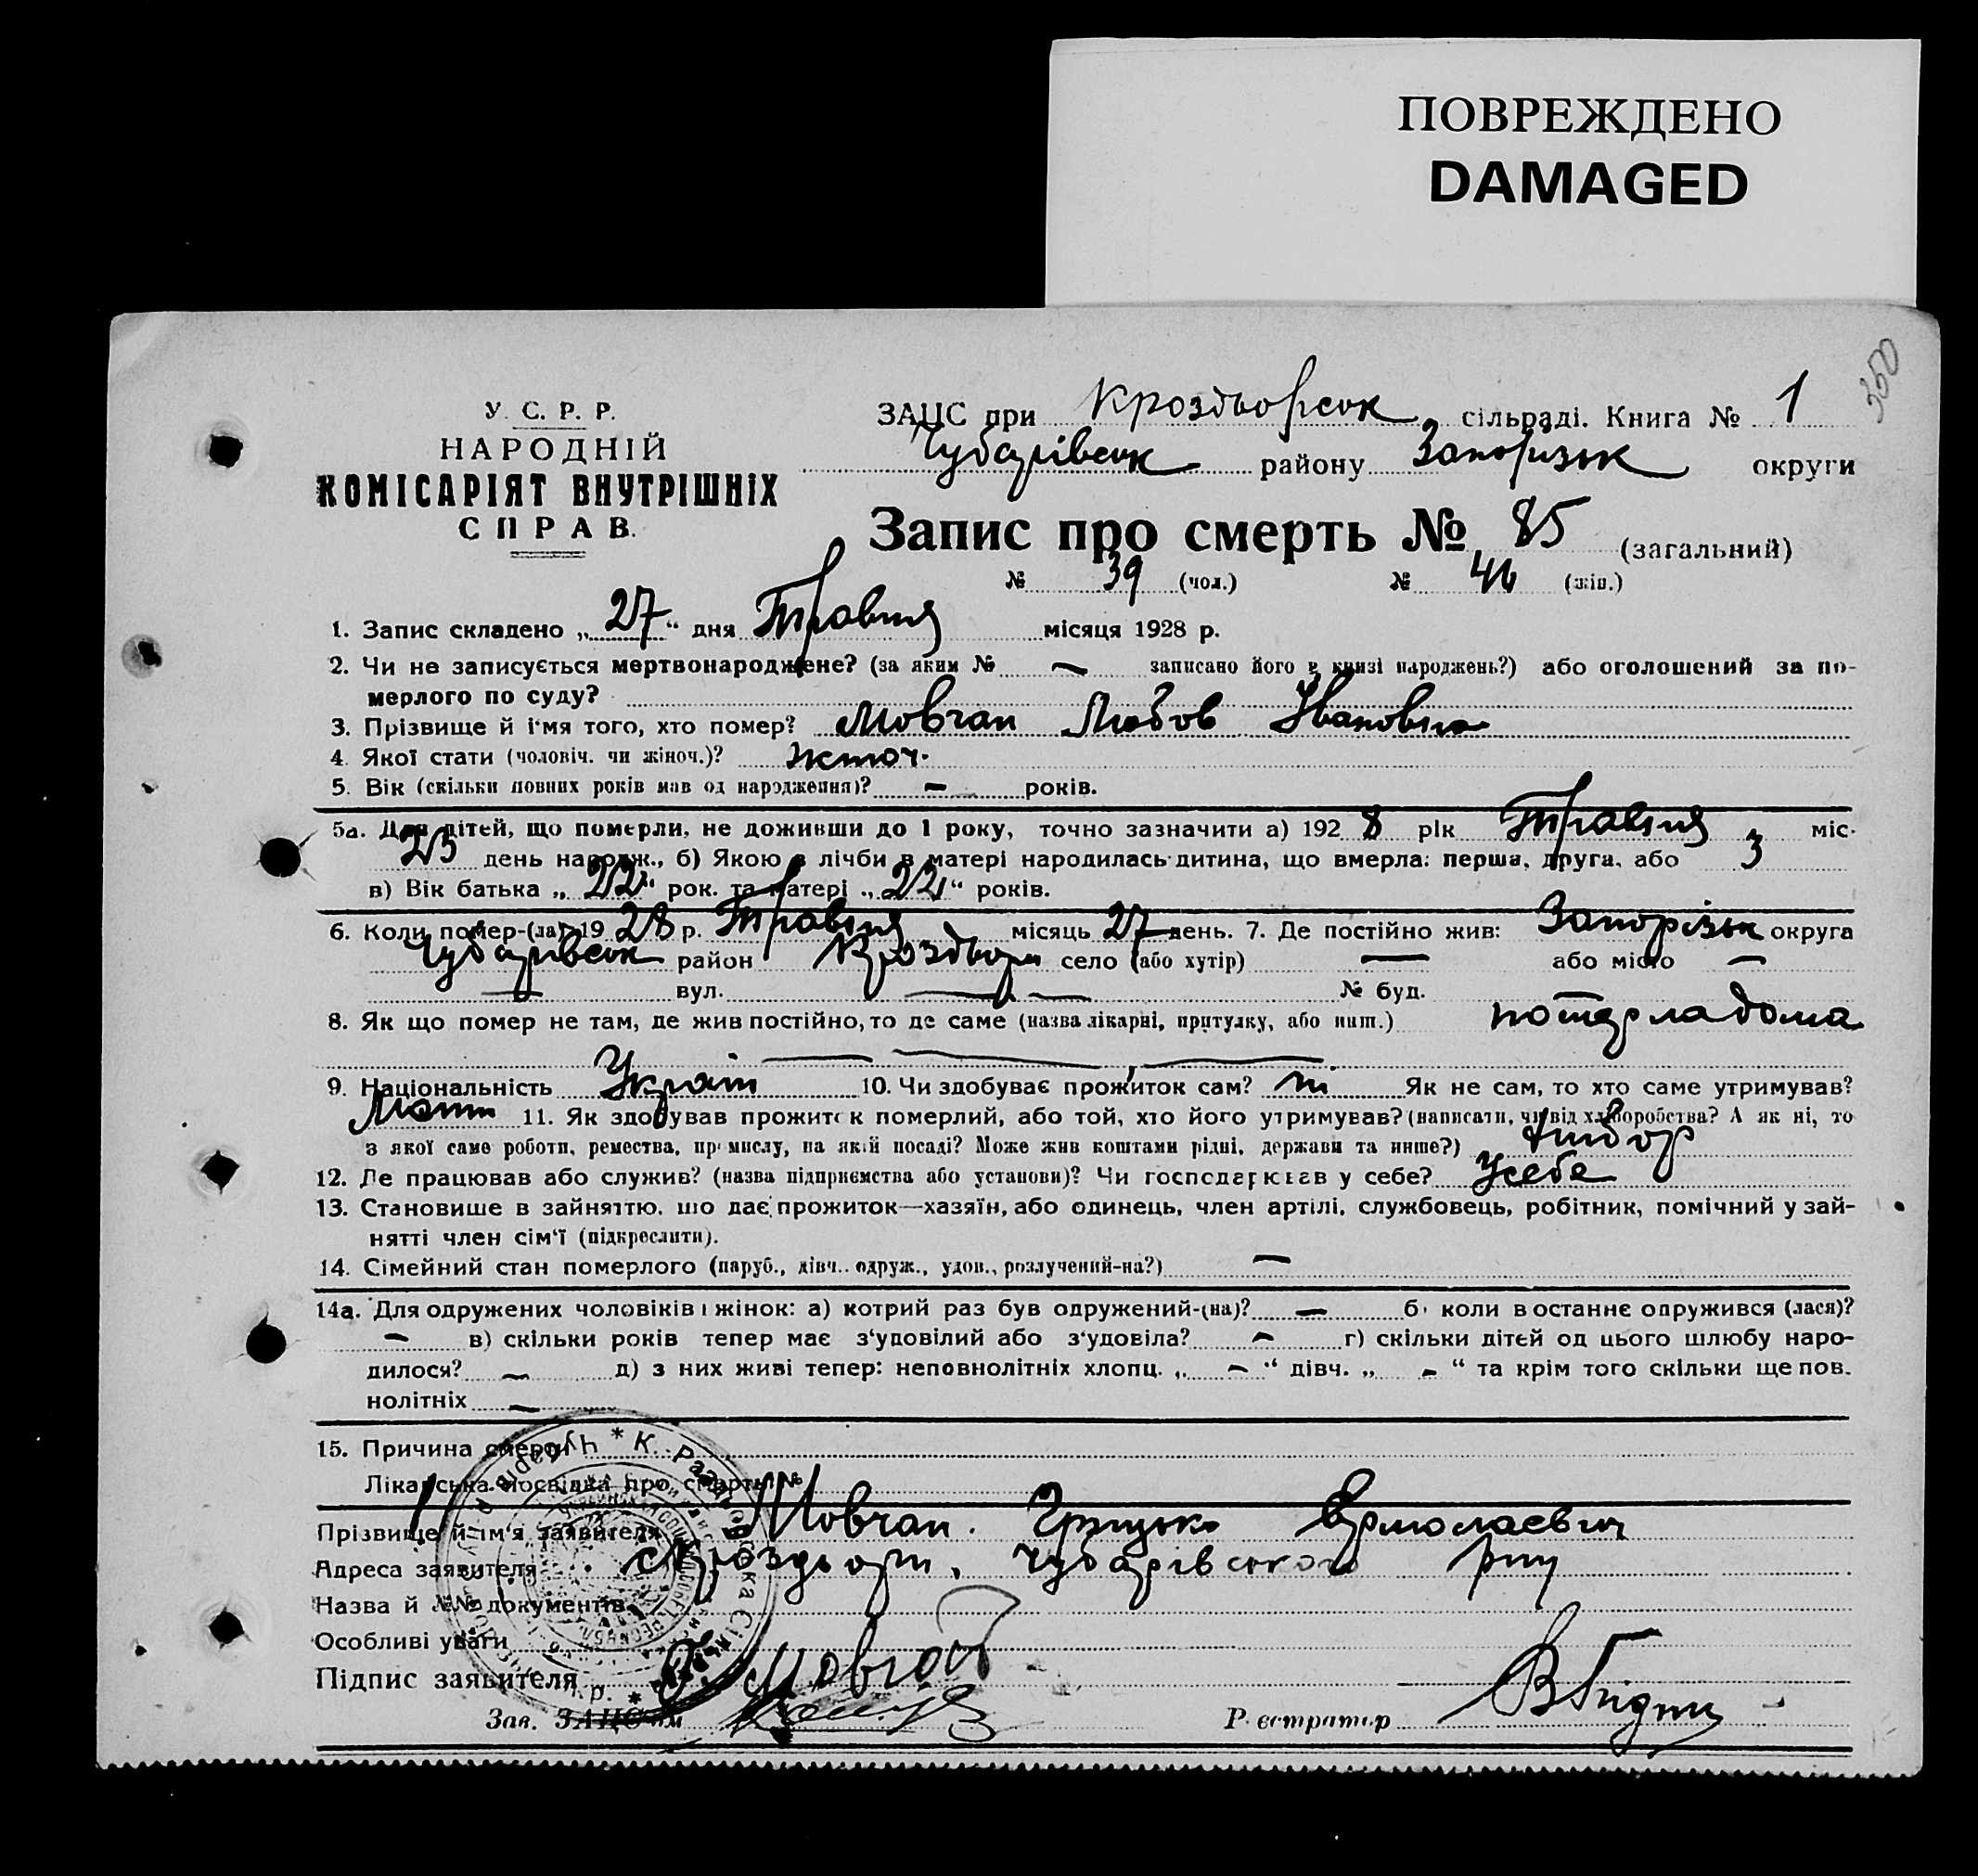 ПОВРЕЖДЕНО
DAMAGED
350
У. С. Р. Р.
НАРОДНІЙ
КОМІСАРІЯТ ВНУТРІШНІХ
СПРАВ.
ЗАЦС при Кроздворсок сільраді. Книга № 1
Чубарівсок району Запорізьк округи
Запис про смерть № 85 (загальний)
№ 39 (чол.) № 46 (жін.)
1. Запис складено „27“ дня Травня місяця 1928 р.
2. Чи не записується мертвонароджене? (за яким № — записано його в книзі народжень?) або оголошений за по-
мерлого по суду?
3. Прізвище й і‘мя того, хто помер? Мовчан Любов Івановна
4. Якої стати (чоловіч. чи жіноч.)? жіноч.
5. Вік (скільки повних років мав од народження)? — років.
5а. Для дітей, що померли, не доживши до 1 року, точно зазначити а) 1928 рік Травня міс.
25 день народж., б) Якою з лічби в матері народилась дитина, що вмерла: перша, друга, або 3
в) Вік батька „22“ рок. та матері „22“ років.
6. Коли помер-(ла) 1928 р. Травня місяць 27 день. 7. Де постійно жив: Запорізьк округа
Чубарівсок район село (або хутір) — або місто —
— вул. — — № буд. —
8. Як що помер не там, де жив постійно, то де саме (назва лікарні, притулку, або инш.) померла дома
9. Національність Україн 10. Чи здобуває прожиток сам? ні Як не сам, то хто саме утримував?
Мати 11. Як здобував прожиток померлий, або той, хто його утримував? (написати, чи від хліборобства? А як ні, то
з якої саме роботи, ремества, промислу, на якій посаді? Може жив коштами рідні, держави та инше?) хлибор
12. Де працював або служив? (назва підприємства або установи)? Чи господарював у себе? У себе
13. Становише в зайняттю, що дає прожиток—хазяїн, або одинець, член артілі, службовець, робітник, помічний у зай-
нятті член сім‘ї (підкреслити).
14. Сімейний стан померлого (паруб., дівч., одруж., удов., розлучений-на?) —
14а. Для одружених чоловіків і жінок: а) котрий раз був одружений-(на)? — б) коли в останнє одружився (лася)?
— в) скільки років тепер має з‘удовілий або з‘удовіла? — г) скільки дітей од цього шлюбу наро-
дилося? — д) з них живі тепер: неповнолітніх хлопц. „—“ дівч. „—“ та крім того скільки ще пов.
нолітніх —
15. Причина смерти
Лікарська посвідка про смерть №
Прізвище й ім‘я заявителя Мовчан Грицько Єрмолаевич
Адреса заявителя Чубарівського р-ну
Назва й №№ документів
Особливі уваги
Підпис заявителя Мовчан
Зав. ЗАЦС‘ом
Реєстратор